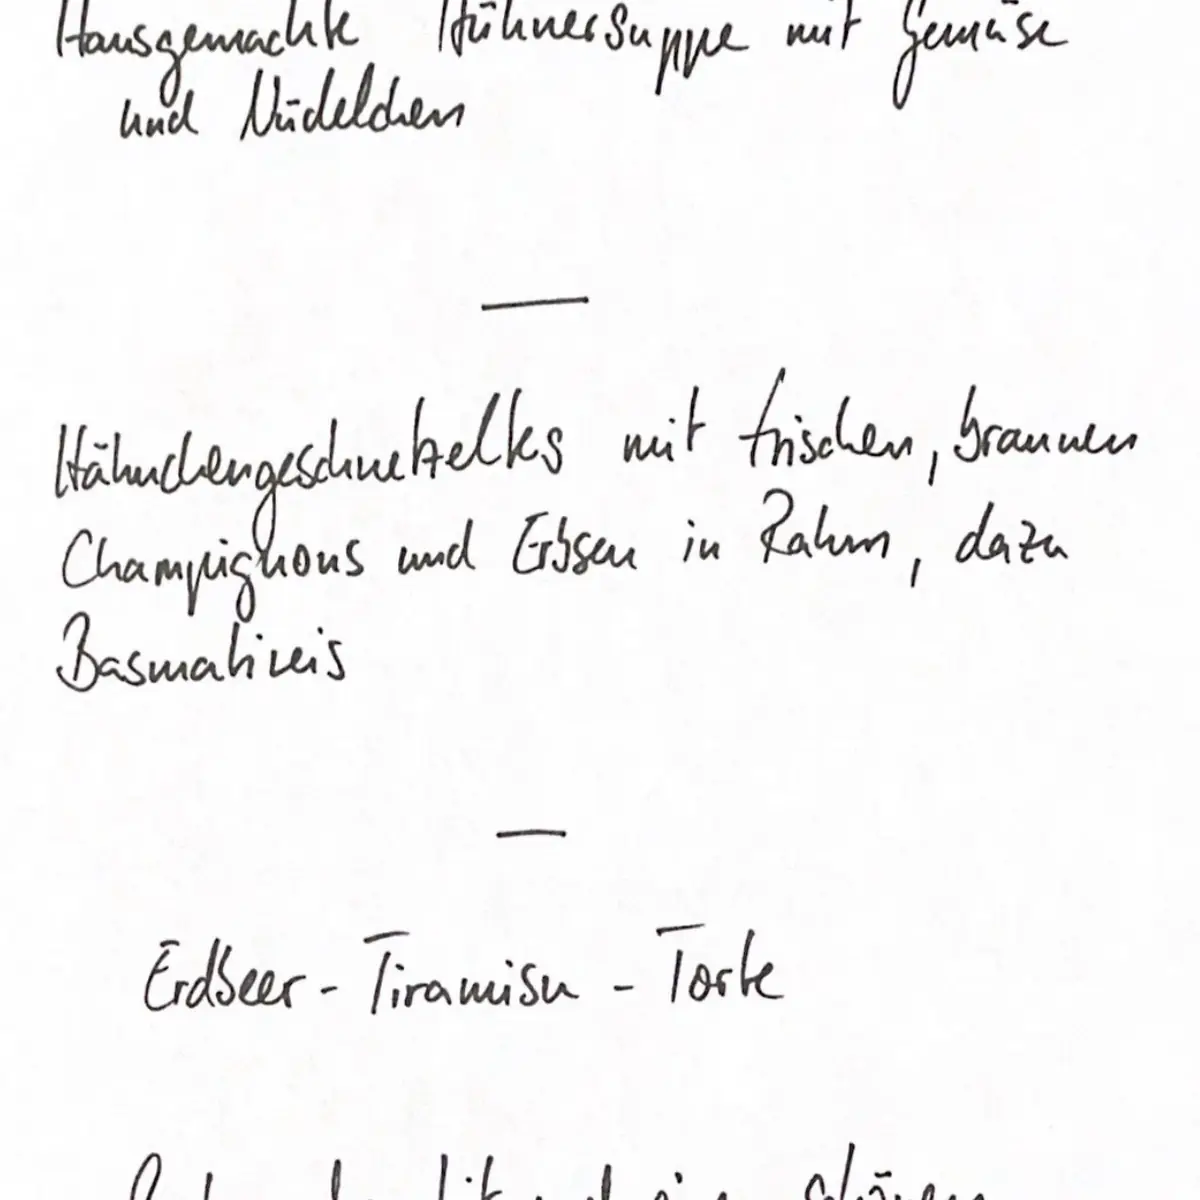 Hausgemachte Hühnersuppe mit Gemüse
und Nüdelchen
—
Hähnchengeschnetzeltes mit frischen, braunen
Champignons und Erbsen in Rahm, dazu
Basmatireis
—
Erdbeer - Tiramisu - Torte